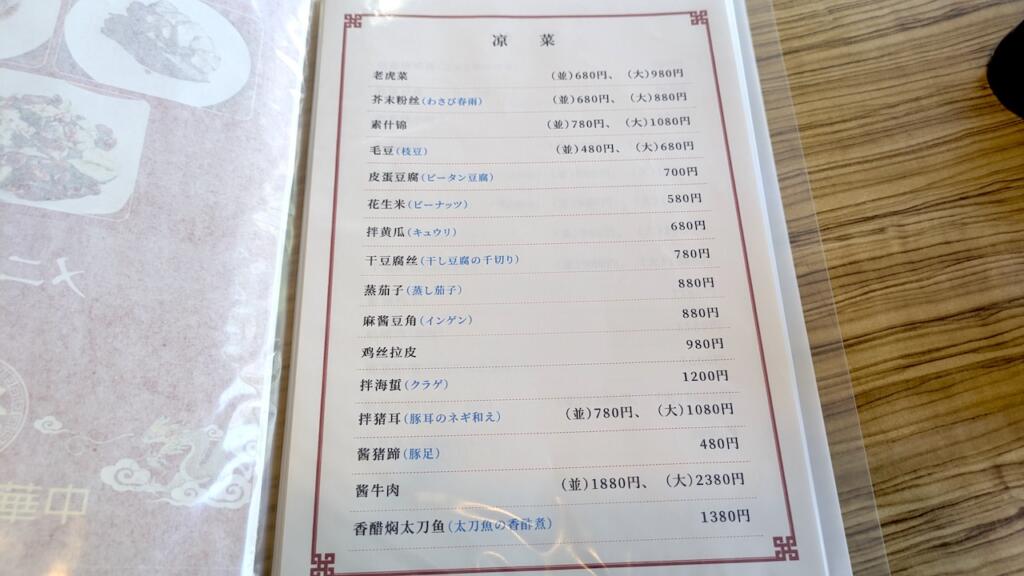 凉 菜
老虎菜 (並)680円、 (大)980円
芥末粉丝(わさび春雨) (並)680円、 (大)880円
素什锦 (並)780円、 (大)1080円
毛豆(枝豆) (並)480円、 (大)680円
皮蛋豆腐(ピータン豆腐) 700円
花生米(ピーナッツ) 580円
拌黄瓜(キュウリ) 680円
干豆腐丝(干し豆腐の千切り) 780円
蒸茄子(蒸し茄子) 880円
麻酱豆角(インゲン) 880円
鸡丝拉皮 980円
拌海蜇(クラゲ) 1200円
拌猪耳(豚耳のネギ和え) (並)780円、 (大)1080円
酱猪蹄(豚足) 480円
酱牛肉 (並)1880円、 (大)2380円
香醋焖太刀鱼(太刀魚の香酢煮) 1380円
メニ
中華